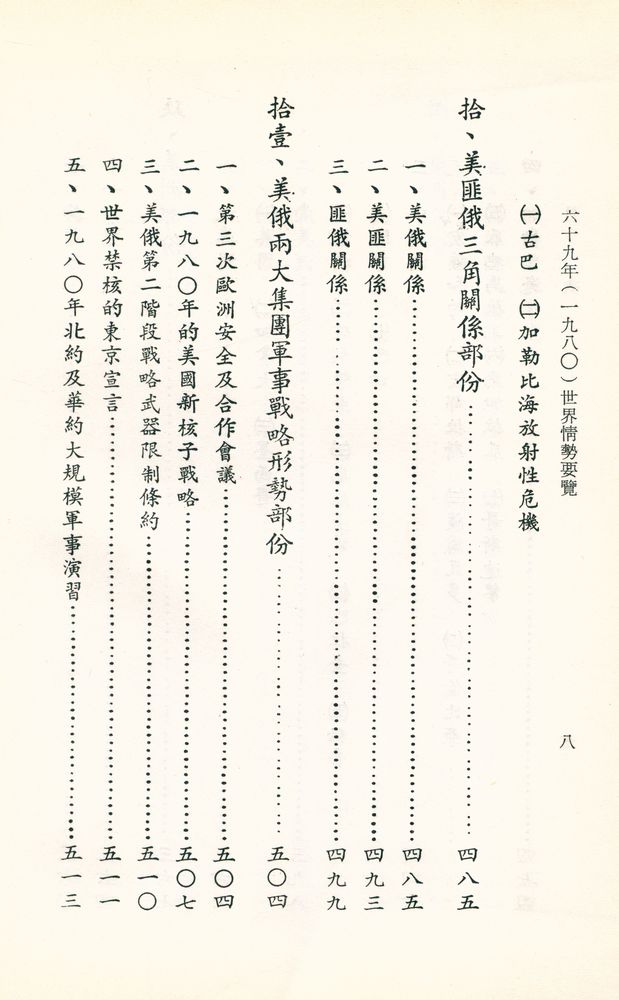 六十九年（一九八〇）世界情勢要覽
八
㈠古巴　㈡加勒比海放射性危機
拾、美匪俄三角關係部份……四八五
一、美俄關係……四八五
二、美匪關係……四九三
三、匪俄關係……四九九
拾壹、美俄兩大集團軍事戰略形勢部份……五〇四
一、第三次歐洲安全及合作會議……五〇四
二、一九八〇年的美國新核子戰略……五〇七
三、美俄第二階段戰略武器限制條約……五一〇
四、世界禁核的東京宣言……五一一
五、一九八〇年北約及華約大規模軍事演習……五一三